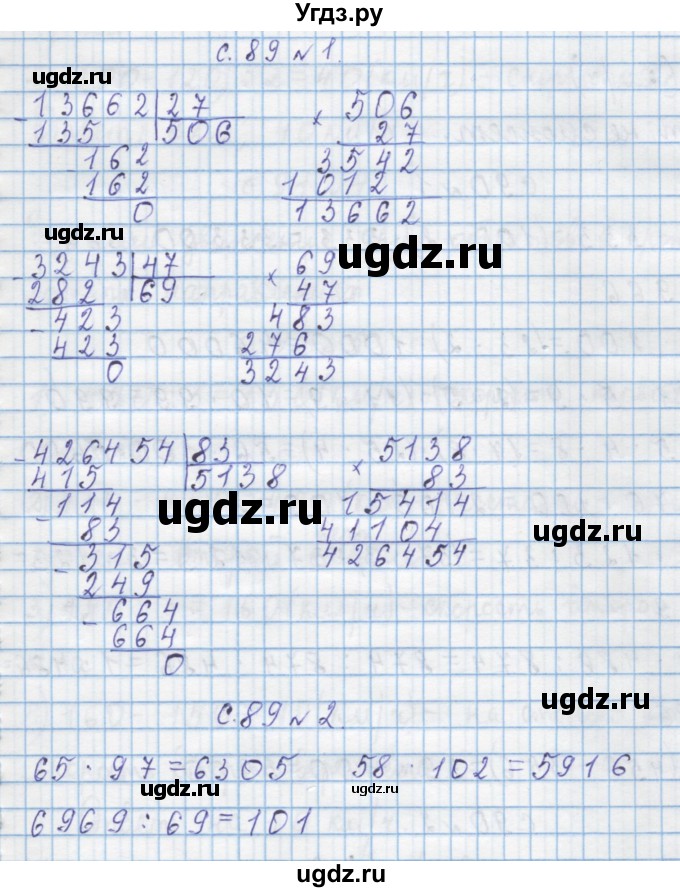 Угдз.ру
с. 89 № 1.
ugdz.ru
ugdz.ru
- 13662 | 27
135 | 506
162
162
0
× 506
27
3542
1012
13662
ugdz.ru
ugdz.ru
- 3243 | 47
282 | 69
- 423
423
0
× 69
47
483
276
3243
- 426454 | 83
415 | 5138
- 114
83
- 315
249
- 664
664
0
× 5138
83
15414
41104
426454
ugdz.ru
ugdz.ru
ugdz.ru
с. 89 № 2.
65 · 97 = 6305 58 · 102 = 5916
ugdz.ru
ugdz.ru
6969 : 69 = 101
ugdz.ru